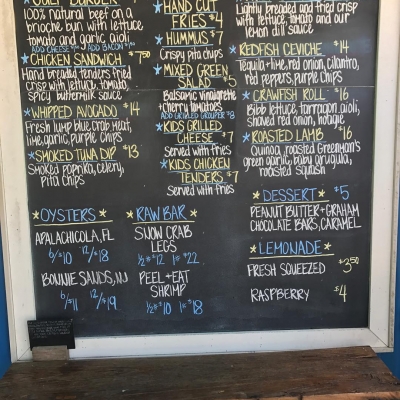 100% natural beef on a
brioche bun with lettuce,
tomato and garlic aioli
ADD CHEESE $1 ADD BACON $1
CHICKEN SANDWICH $7.50
Hand breaded tenders fried
crisp with lettuce, tomato,
spicy buttermilk sauce
WHIPPED AVOCADO $14
Fresh lump blue crab meat,
lime, garlic, purple chips
SMOKED TUNA DIP $13
Smoked paprika, celery,
Pita Chips
OYSTERS
APALACHICOLA, FL
6/$10 12/$18
BONNE SANDS, NJ
6/$11 12/$19
HAND CUT
FRIES $4
HUMMUS $7
Crispy pita chips
MIXED GREEN
SALAD $5
Balsamic vinaigrette
+ cherry tomatoes
ADD GRILLED GROUPER $8
KIDS GRILLED
CHEESE $7
Served with fries
KIDS CHICKEN
TENDERS $7
Served with fries
RAW BAR
SNOW CRAB
LEGS
1/2# $12 1# $22
PEEL + EAT
SHRIMP
1/2# $10 1# $18
Lightly breaded and fried crisp
with lettuce, tomato and our
lemon dill sauce
REDFISH CEVICHE $14
Tequila + lime, red onion, cilantro,
red peppers, purple chips
CRAWFISH ROLL $16
Bibb lettuce, tarragon, aioli,
shaved red onion, hoagie
ROASTED LAMB $16
Quinoa, roasted Greenman's
green garlic, baby arugula,
roasted squash
DESSERT $5
PEANUT BUTTER + GRAHAM
CHOCOLATE BARS, CARAMEL
LEMONADE
FRESH SQUEEZED $3.50
RASPBERRY $4